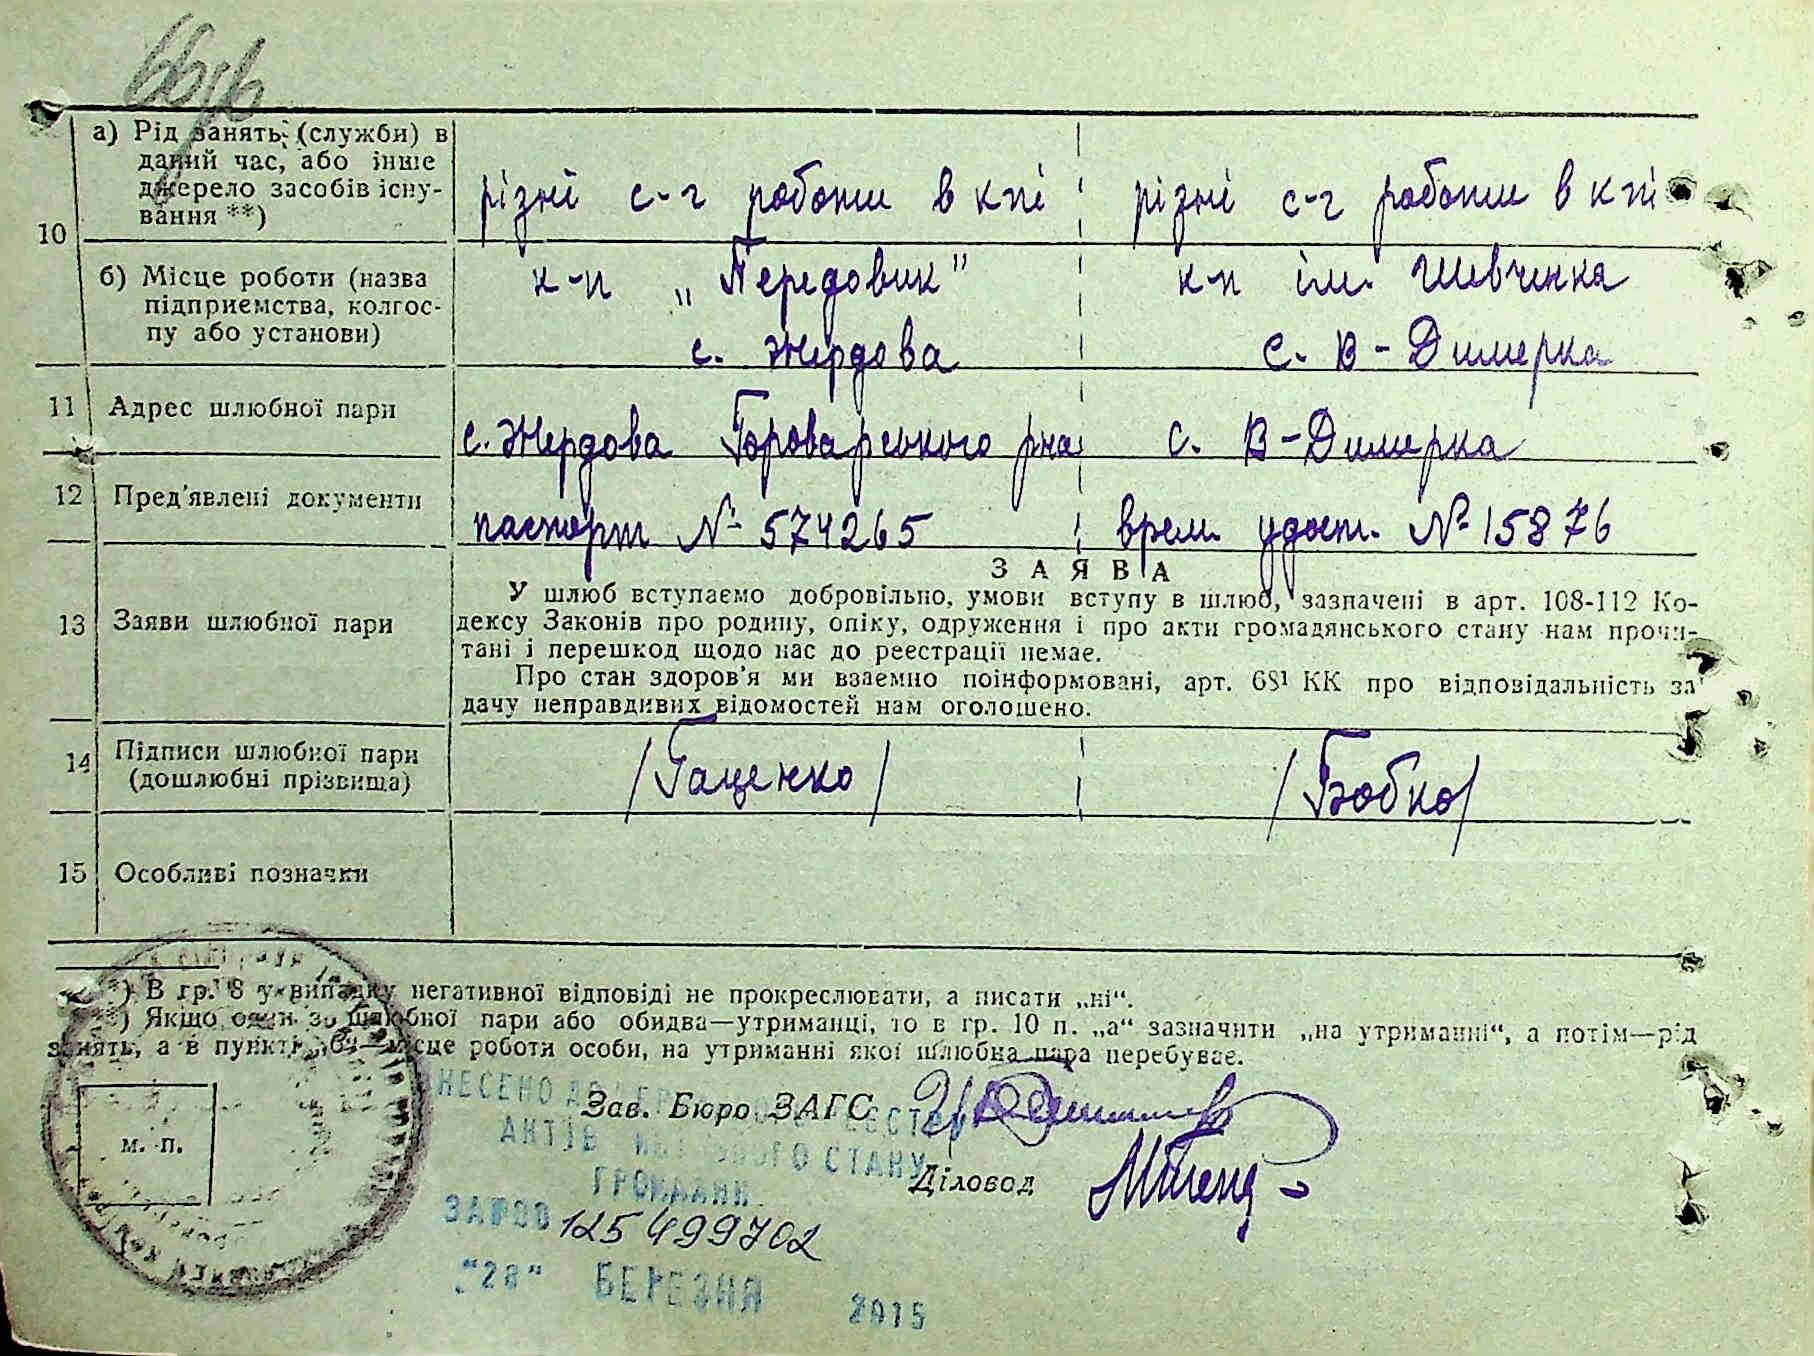 а) Рід занять (служби) в
даний час, або інше
джерело засобів існу-
вання **)
10
різні с-г роботи в кпі
різні с-г роботи в кпі
б) Місце роботи (назва
підприємства, колгос-
пу або установи)
к-п „Передовик"
с. Жердова
к-п ім. Шевченка
с. В-Димерка
11 Адрес шлюбної пари
с. Жердова Броварського р-на
с. В-Димерка
12 Пред'явлені документи
паспорт № 574265
врем. удост. № 15876
13 Заяви шлюбної пари
ЗАЯВА
У шлюб вступаємо добровільно, умови вступу в шлюб, зазначені в арт. 108-112 Ко-
дексу Законів про родину, опіку, одруження і про акти громадянського стану нам прочи-
тані і перешкод щодо нас до реєстрації немає.
Про стан здоров'я ми взаємно поінформовані, арт. 68¹ КК про відповідальність за
дачу неправдивих відомостей нам оголошено.
14 Підписи шлюбної пари
(дошлюбні прізвища)
/Гаценко/
/Бобко/
15 Особливі позначки
*) В гр. 8 у випадку негативної відповіді не прокреслювати, а писати „ні“.
**) Якщо один зо шлюбної пари або обидва—утриманці, то в гр. 10 п. „а“ зазначити „на утриманні“, а потім—рід
занять, а в пункті „б“—місце роботи особи, на утриманні якої шлюбна пара перебуває.
Зав. Бюро ЗАГС
м. п.
Діловод
АКТІВ СТАНУ
ГРОМАДЯН
125499702
"28" БЕРЕЗНЯ 2015